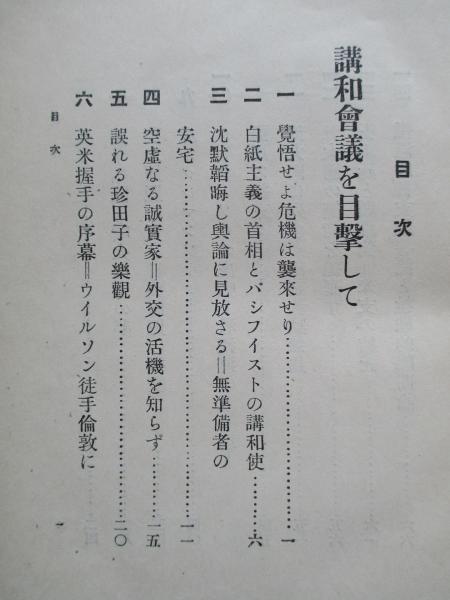 目次
講和會議を目擊して
一 覺悟せよ危機は襲來せり……………………一
二 白紙主義の首相とパシフイストの講和使………六
三 沈默韜晦し輿論に見放さる＝無準備者の
安宅……………………………………一一
四 空虛なる誠實家＝外交の活機を知らず………一五
五 誤れる珍田子の樂觀……………………二〇
六 英米握手の序幕＝ウイルソン徒手倫敦に
目次
一